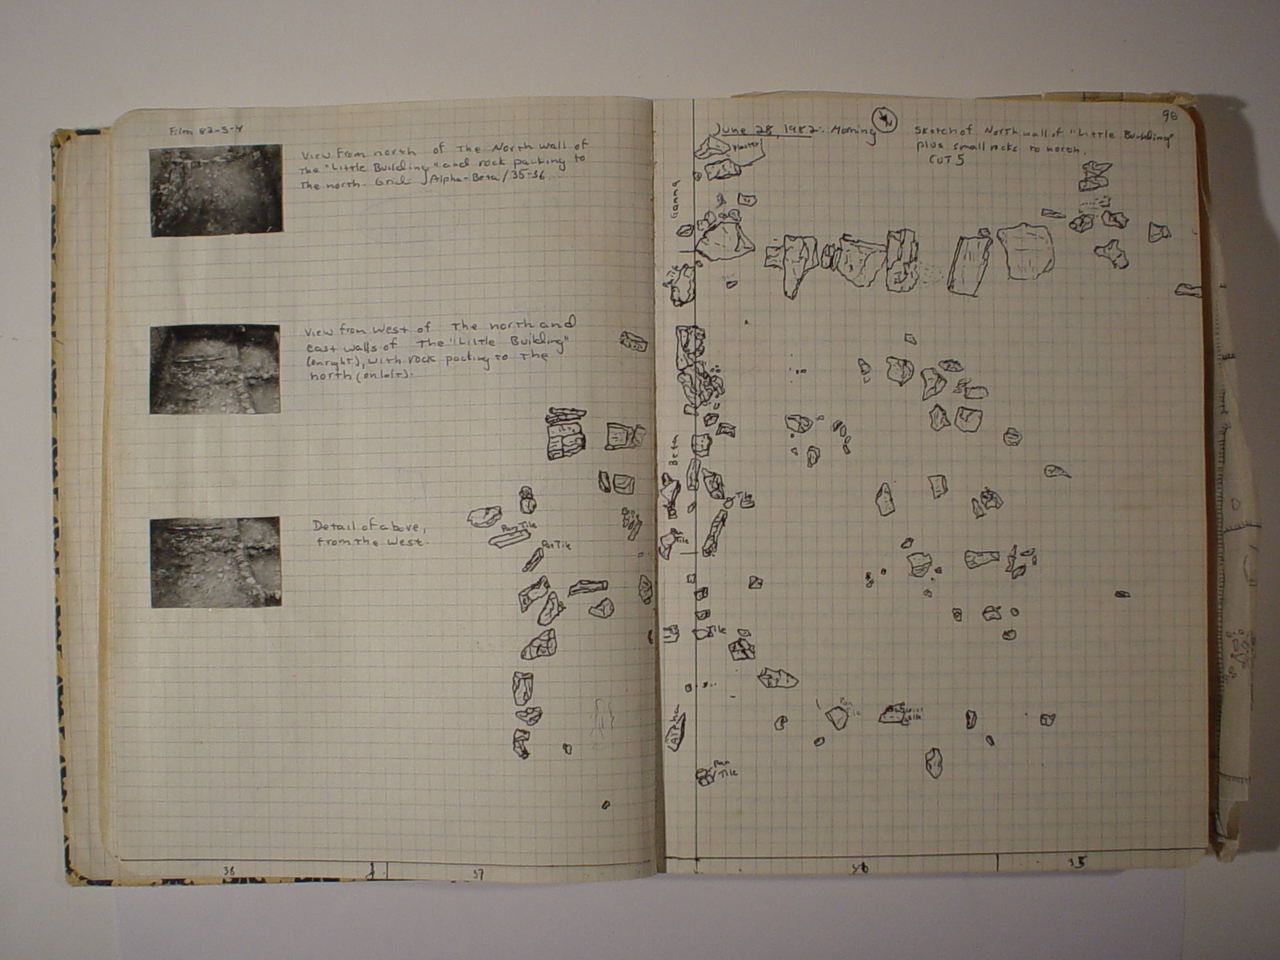 Film 82-5-4
View from north of The North wall of
The "Little Building" and rock packing to
The north. Grid Alpha-Beta/35-36
View from West of The north and
east walls of The "Little Building"
(on right), with rock packing to the
north (on left).
Detail of above,
from the West.
Pan Tile
Pan Tile
38
37
98
June 28, 1982. Morning
N
Sketch of North wall of "Little Building"
plus small rocks to north.
CUT 5
Gamma
Tile
Beta
Tile
Pan
Tile
Tile
Pan
Tile
Alpha
Pan
Tile
36
35